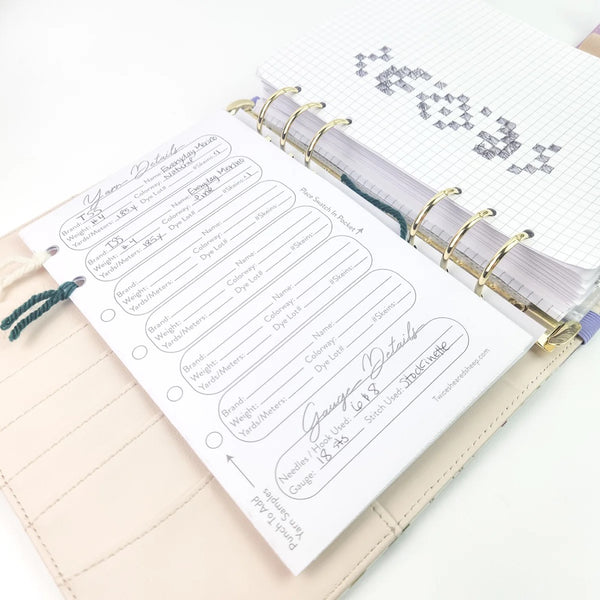 Yarn Details
Brand: TSS Name: Everyday Merino
Weight: #4 Colorway: Natural
Yards/Meters: 185y Dye Lot# #Skeins:
Brand: TSS Name: Everyday Merino
Weight: #4 Colorway: Pine
Yards/Meters: 185y Dye Lot# #Skeins:
Brand: Name:
Weight: Colorway:
Yards/Meters: Dye Lot# #Skeins:
Brand: Name:
Weight: Colorway:
Yards/Meters: Dye Lot# #Skeins:
Brand: Name:
Weight: Colorway:
Yards/Meters: Dye Lot# #Skeins:
Gauge Details
Needles / Hook Used: Stitch Used: Stockinette
Gauge: 18 sts
TwiceShearedSheep.com
Place Swatch In Pocket
Punch To Add
Yarn Samples